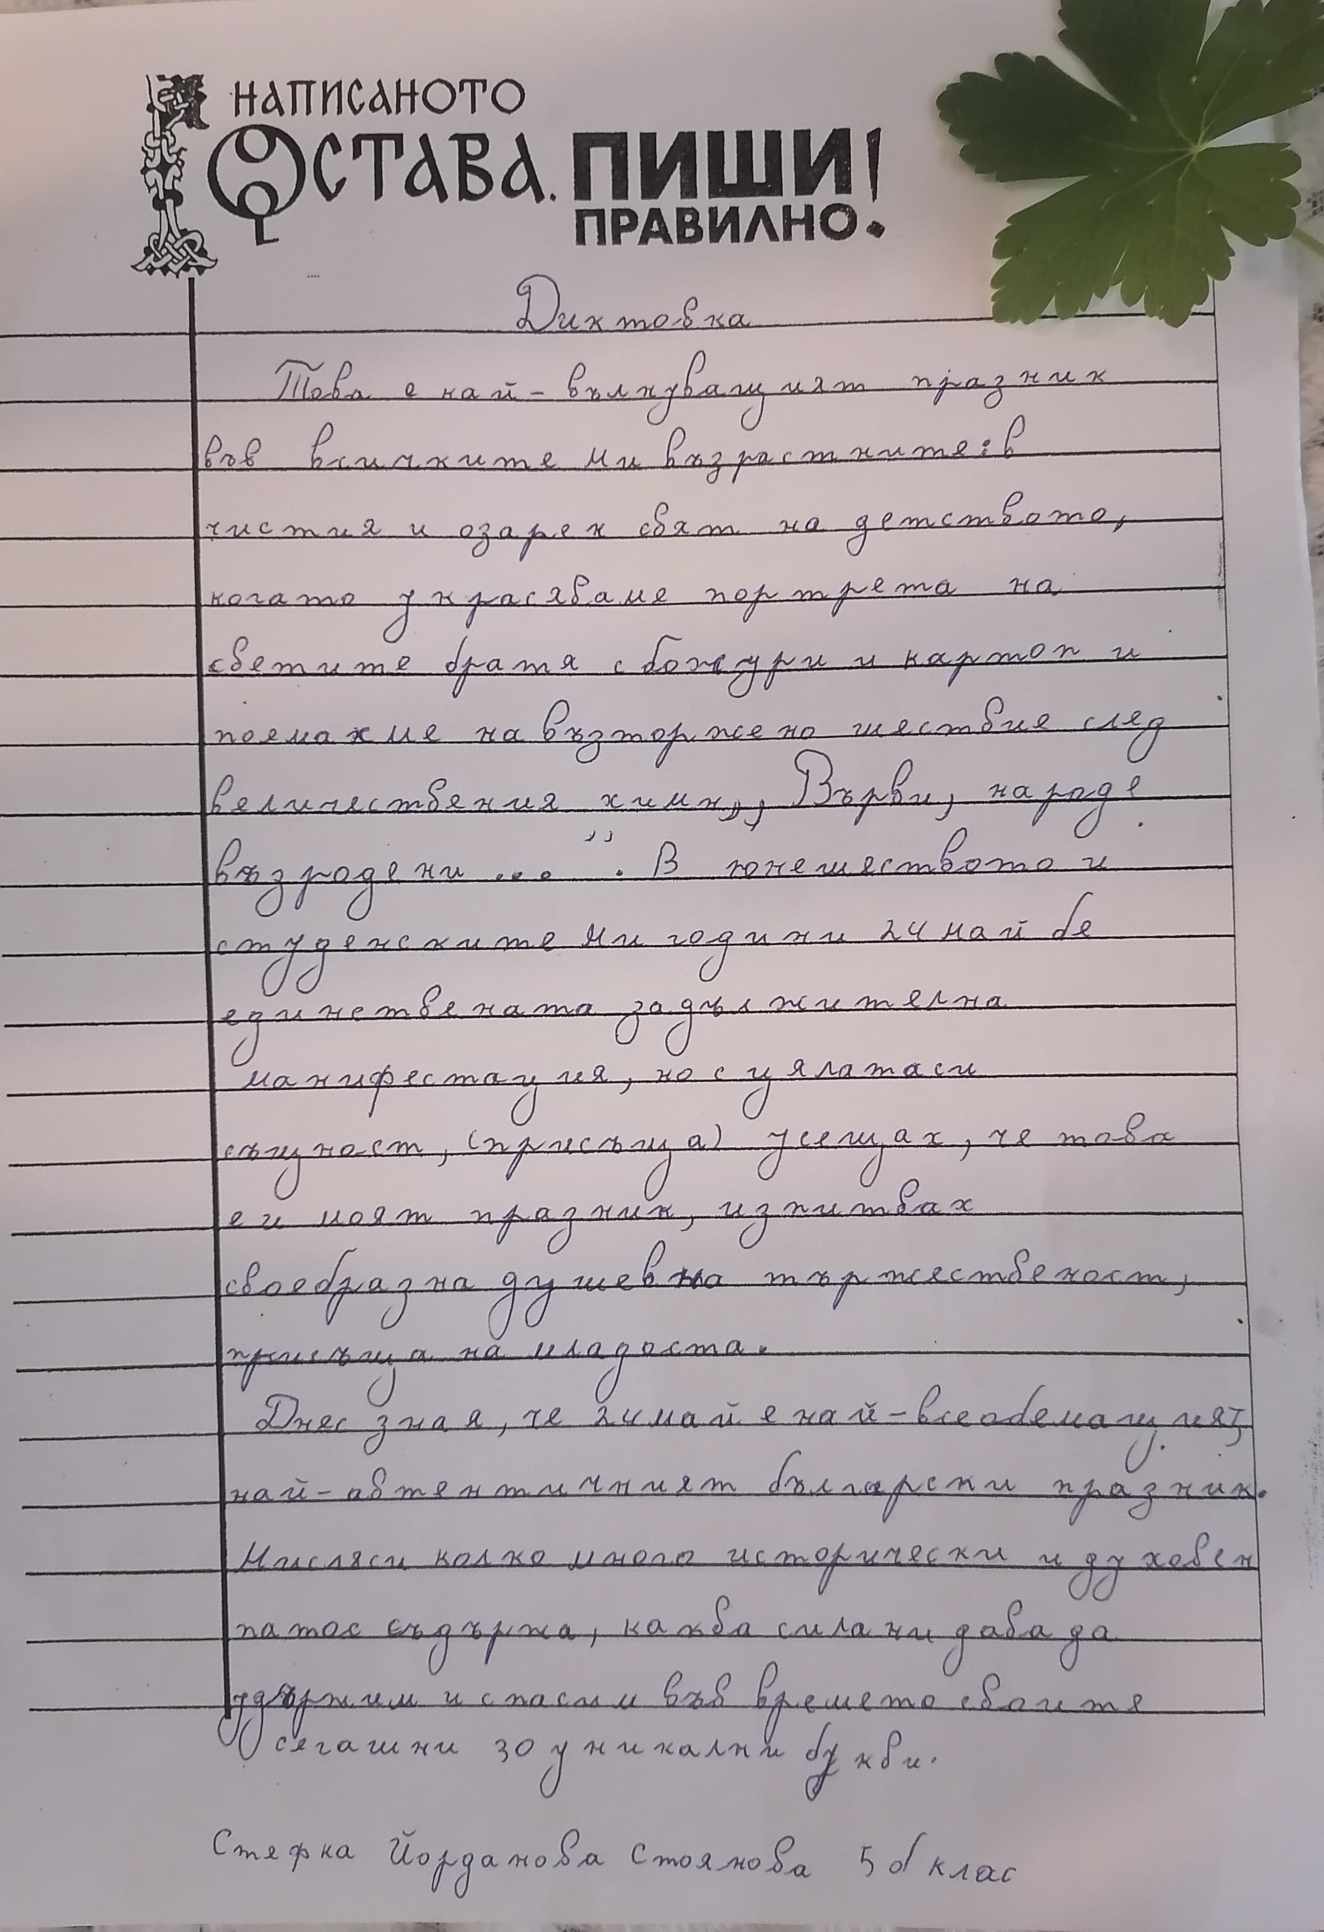 НАПИСАНОТО
ОСТАВА. ПИШИ!
ПРАВИЛНО.
Диктовка
Това е най-вълнуващият празник
във всичките ми възрастните: в
чистия и озарен свят на детството,
когато украсяваме портрета на
светите братя с божури и картон и
поемахме на възторжено шествие след
величествения химн,, Върви, народе
възродени ...". В юношеството и
студенските ми години 24 май бе
единствената задължителна
манифестация, но с цялата си
същност, (присъща) усещах, че това
е и моят празник, изпитвах
своебразна душевна тържественост,
присъща на младоста.
Днес зная, че 24 май е най-всеобемащият,
най-автентичният български празник.
Мисля си колко много исторически и духовен
патос съдържа, каква сила ни дава да
удържим и спасим във времето своите
сегашни 30 уникални букви.
Стефка Йорданова Стоянова 5 б клас